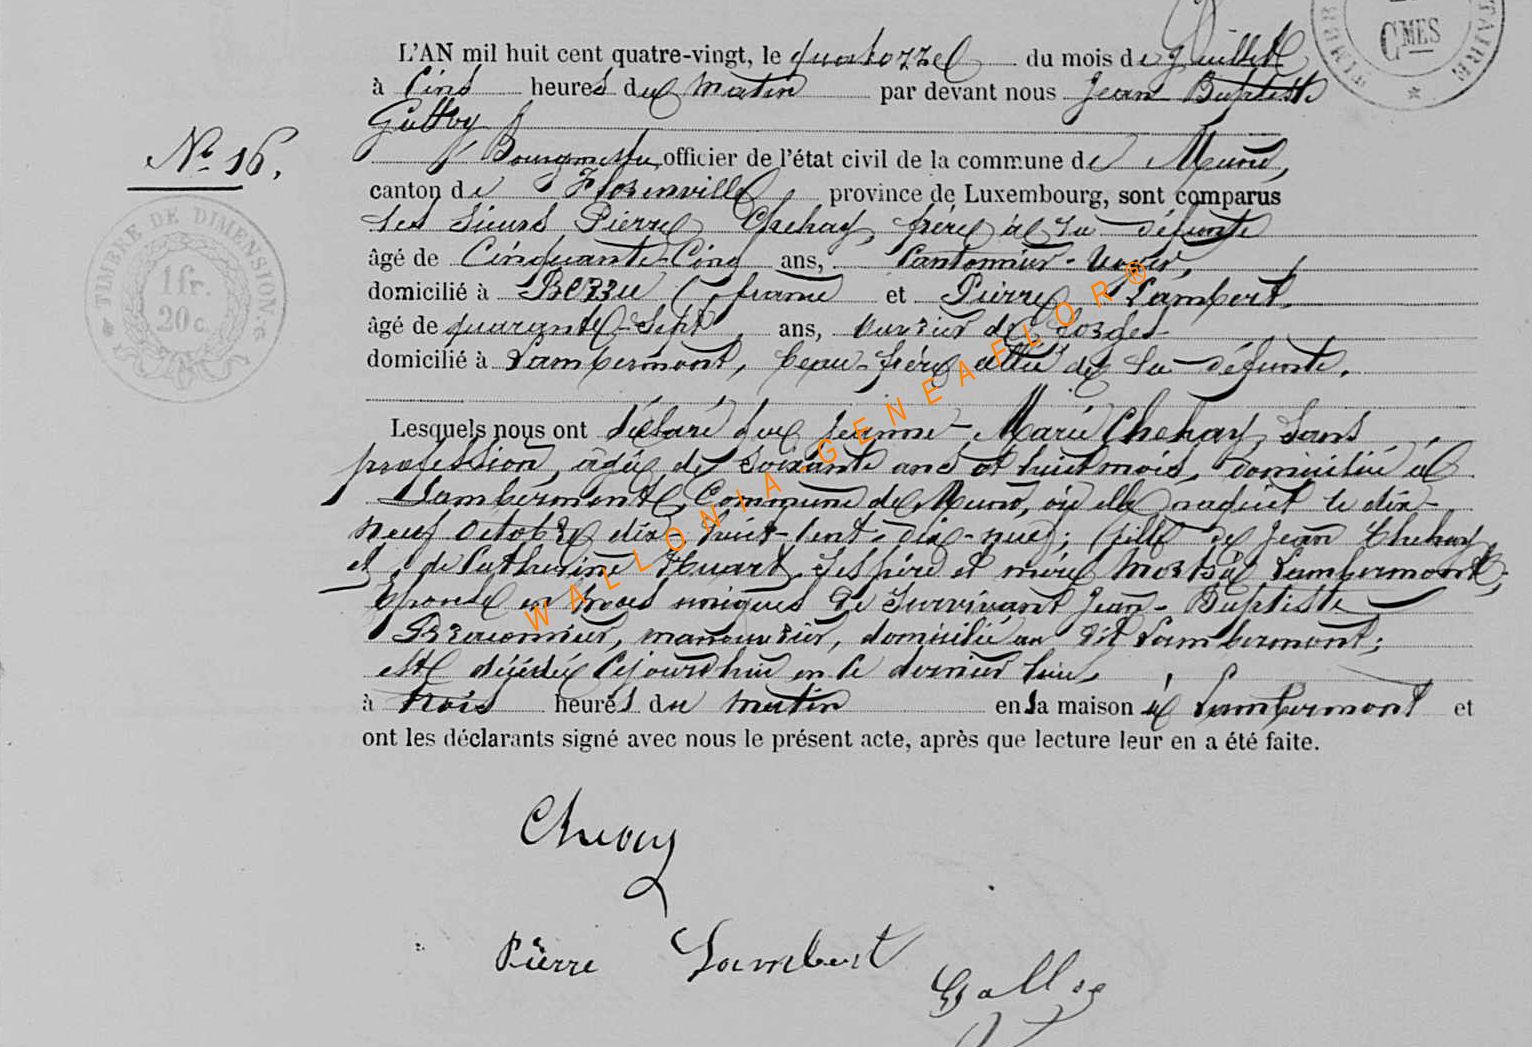 CMES
L'AN mil huit cent quatre-vingt, le quatorze du mois de Juillet
à Cinq heures du matin par devant nous Jean Baptiste
Galloy
Nº 16.
Bourgmestre, officier de l'état civil de la commune de Muno,
canton de Florenville province de Luxembourg, sont comparus
les sieurs Pierre Chehay, frère à la défunte
âgé de Cinquante-Cinq ans, Cantonnier-Voyer,
domicilié à (france) et Pierre Lambert
âgé de quarante-Sept ans, ouvrier de forges
domicilié à Lambermont, beau-frère allié de la défunte.
Lesquels nous ont déclaré que Jeanne-Marie Chehay, Sans
profession, âgée de soixante ans et huit mois, domiciliée à
Lambermont, Commune de Muno, où elle naquit le dix-
neuf octobre dix-huit-cent-dix-neuf; fille de Jean Chehay
et de Catherine Huart, ses père et mère morts à Lambermont;
épouse en noces uniques de Survivant Jean-Baptiste
Braconnier, manouvrier, domicilié au dit Lambermont;
est décédée Cejourd'hui en ce dernier lieu,
à trois heures du matin en sa maison à Lambermont et
ont les déclarants signé avec nous le présent acte, après que lecture leur en a été faite.
TIMBRE DE DIMENSION
1 fr.
20 c.
WALLONIA-GENEAELOR®
Pierre Lambert
Galloy